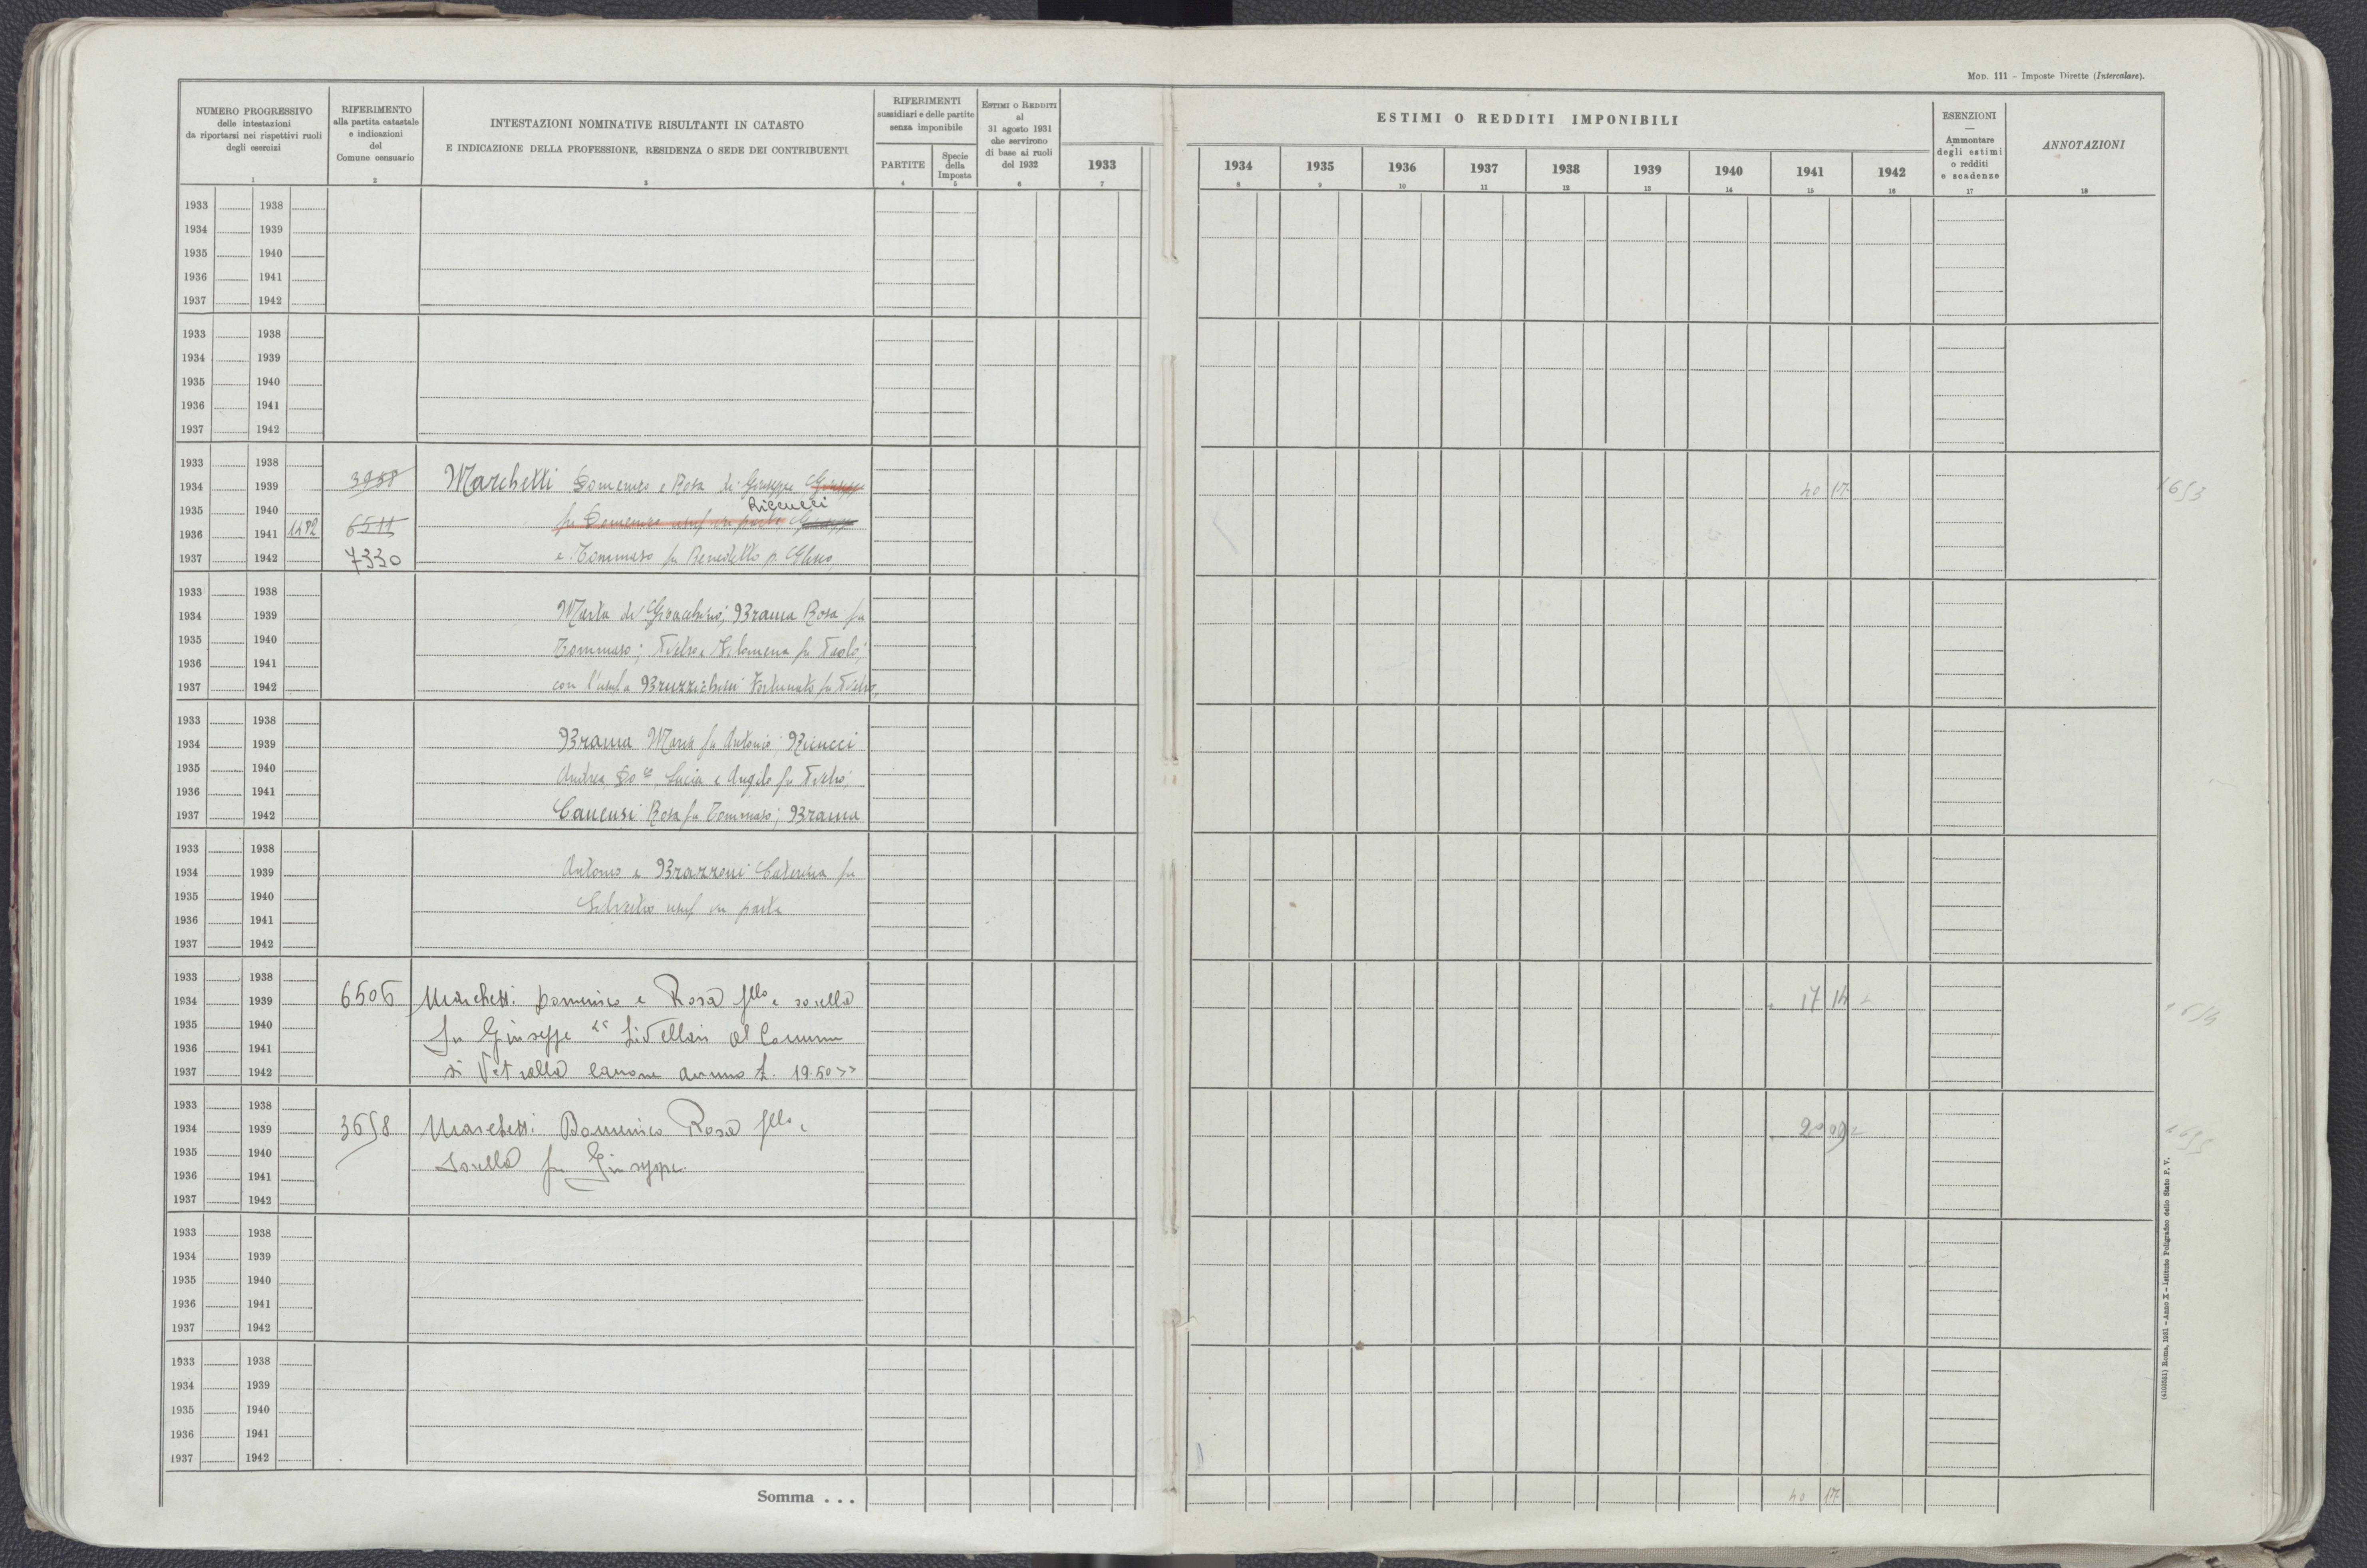 MOD. 111 – Imposte Dirette (Intercalare).
NUMERO PROGRESSIVO
delle intestazioni
da riportarsi nei rispettivi ruoli
degli esercizi
1
RIFERIMENTO
alla partita catastale
e indicazioni
del
Comune censuario
2
INTESTAZIONI NOMINATIVE RISULTANTI IN CATASTO
E INDICAZIONE DELLA PROFESSIONE, RESIDENZA O SEDE DEI CONTRIBUENTI
3
RIFERIMENTI
sussidiari e delle partite
senza imponibile
PARTITE
4
Specie
della
Imposta
5
ESTIMI O REDDITI
al
31 agosto 1931
che servirono
di base ai ruoli
del 1932
6
1933
7
ESTIMI O REDDITI IMPONIBILI
1934 1935 1936 1937 1938 1939 1940 1941 1942
8 9 10 11 12 13 14 15 16
ESENZIONI
—
Ammontare
degli estimi
o redditi
e scadenze
17
ANNOTAZIONI
18
1933 1938
1934 1939
1935 1940
1936 1941
1937 1942
1933 1938
1934 1939
1935 1940
1936 1941
1937 1942
1933 1938
1934 1939 3958 Marchetti Domenico e Rosa di Giuseppe Giuseppe 40 17 1653
1935 1940 Riccucci
1936 1941 1482 6511 fu Domenico usuf in parte Giuseppe
1937 1942 7330 e Tommaso fu Benedetto p.
1933 1938
1934 1939 Marta di Gioacchino; Brama Rosa fu
1935 1940 Tommaso; Pietro e Filomena fu Paolo;
1936 1941
1937 1942 con l'usuf a Bruzzichesi Fortunato fu Pietro
1933 1938
1934 1939 Brama Maria fu Antonio; Ricucci
1935 1940 Andrea, Do Lucia e Angelo fu Pietro;
1936 1941
1937 1942 Canensi Rosa fu Tommaso; Brama
1933 1938
1934 1939 Antonio e Brazzoni Caterina fu
1935 1940 Silvestro usuf in parte
1936 1941
1937 1942
1933 1938
1934 1939 6506 Marchetti Domenico e Rosa fllo e sorella 17 14 1654
1935 1940 fu Giuseppe Livellari al Comune
1936 1941
1937 1942 di Vetralla canone annuo £. 19.50
1933 1938
1934 1939 3658 Marchetti Domenico Rosa fllo e 20 09 1655
1935 1940 sorella fu Giuseppe
1936 1941
1937 1942
1933 1938
1934 1939
1935 1940
1936 1941
1937 1942
1933 1938
1934 1939
1935 1940
1936 1941
1937 1942
Somma . . . 40 17
(4103591) Roma, 1931 – Anno X – Istituto Poligrafico dello Stato P. V.